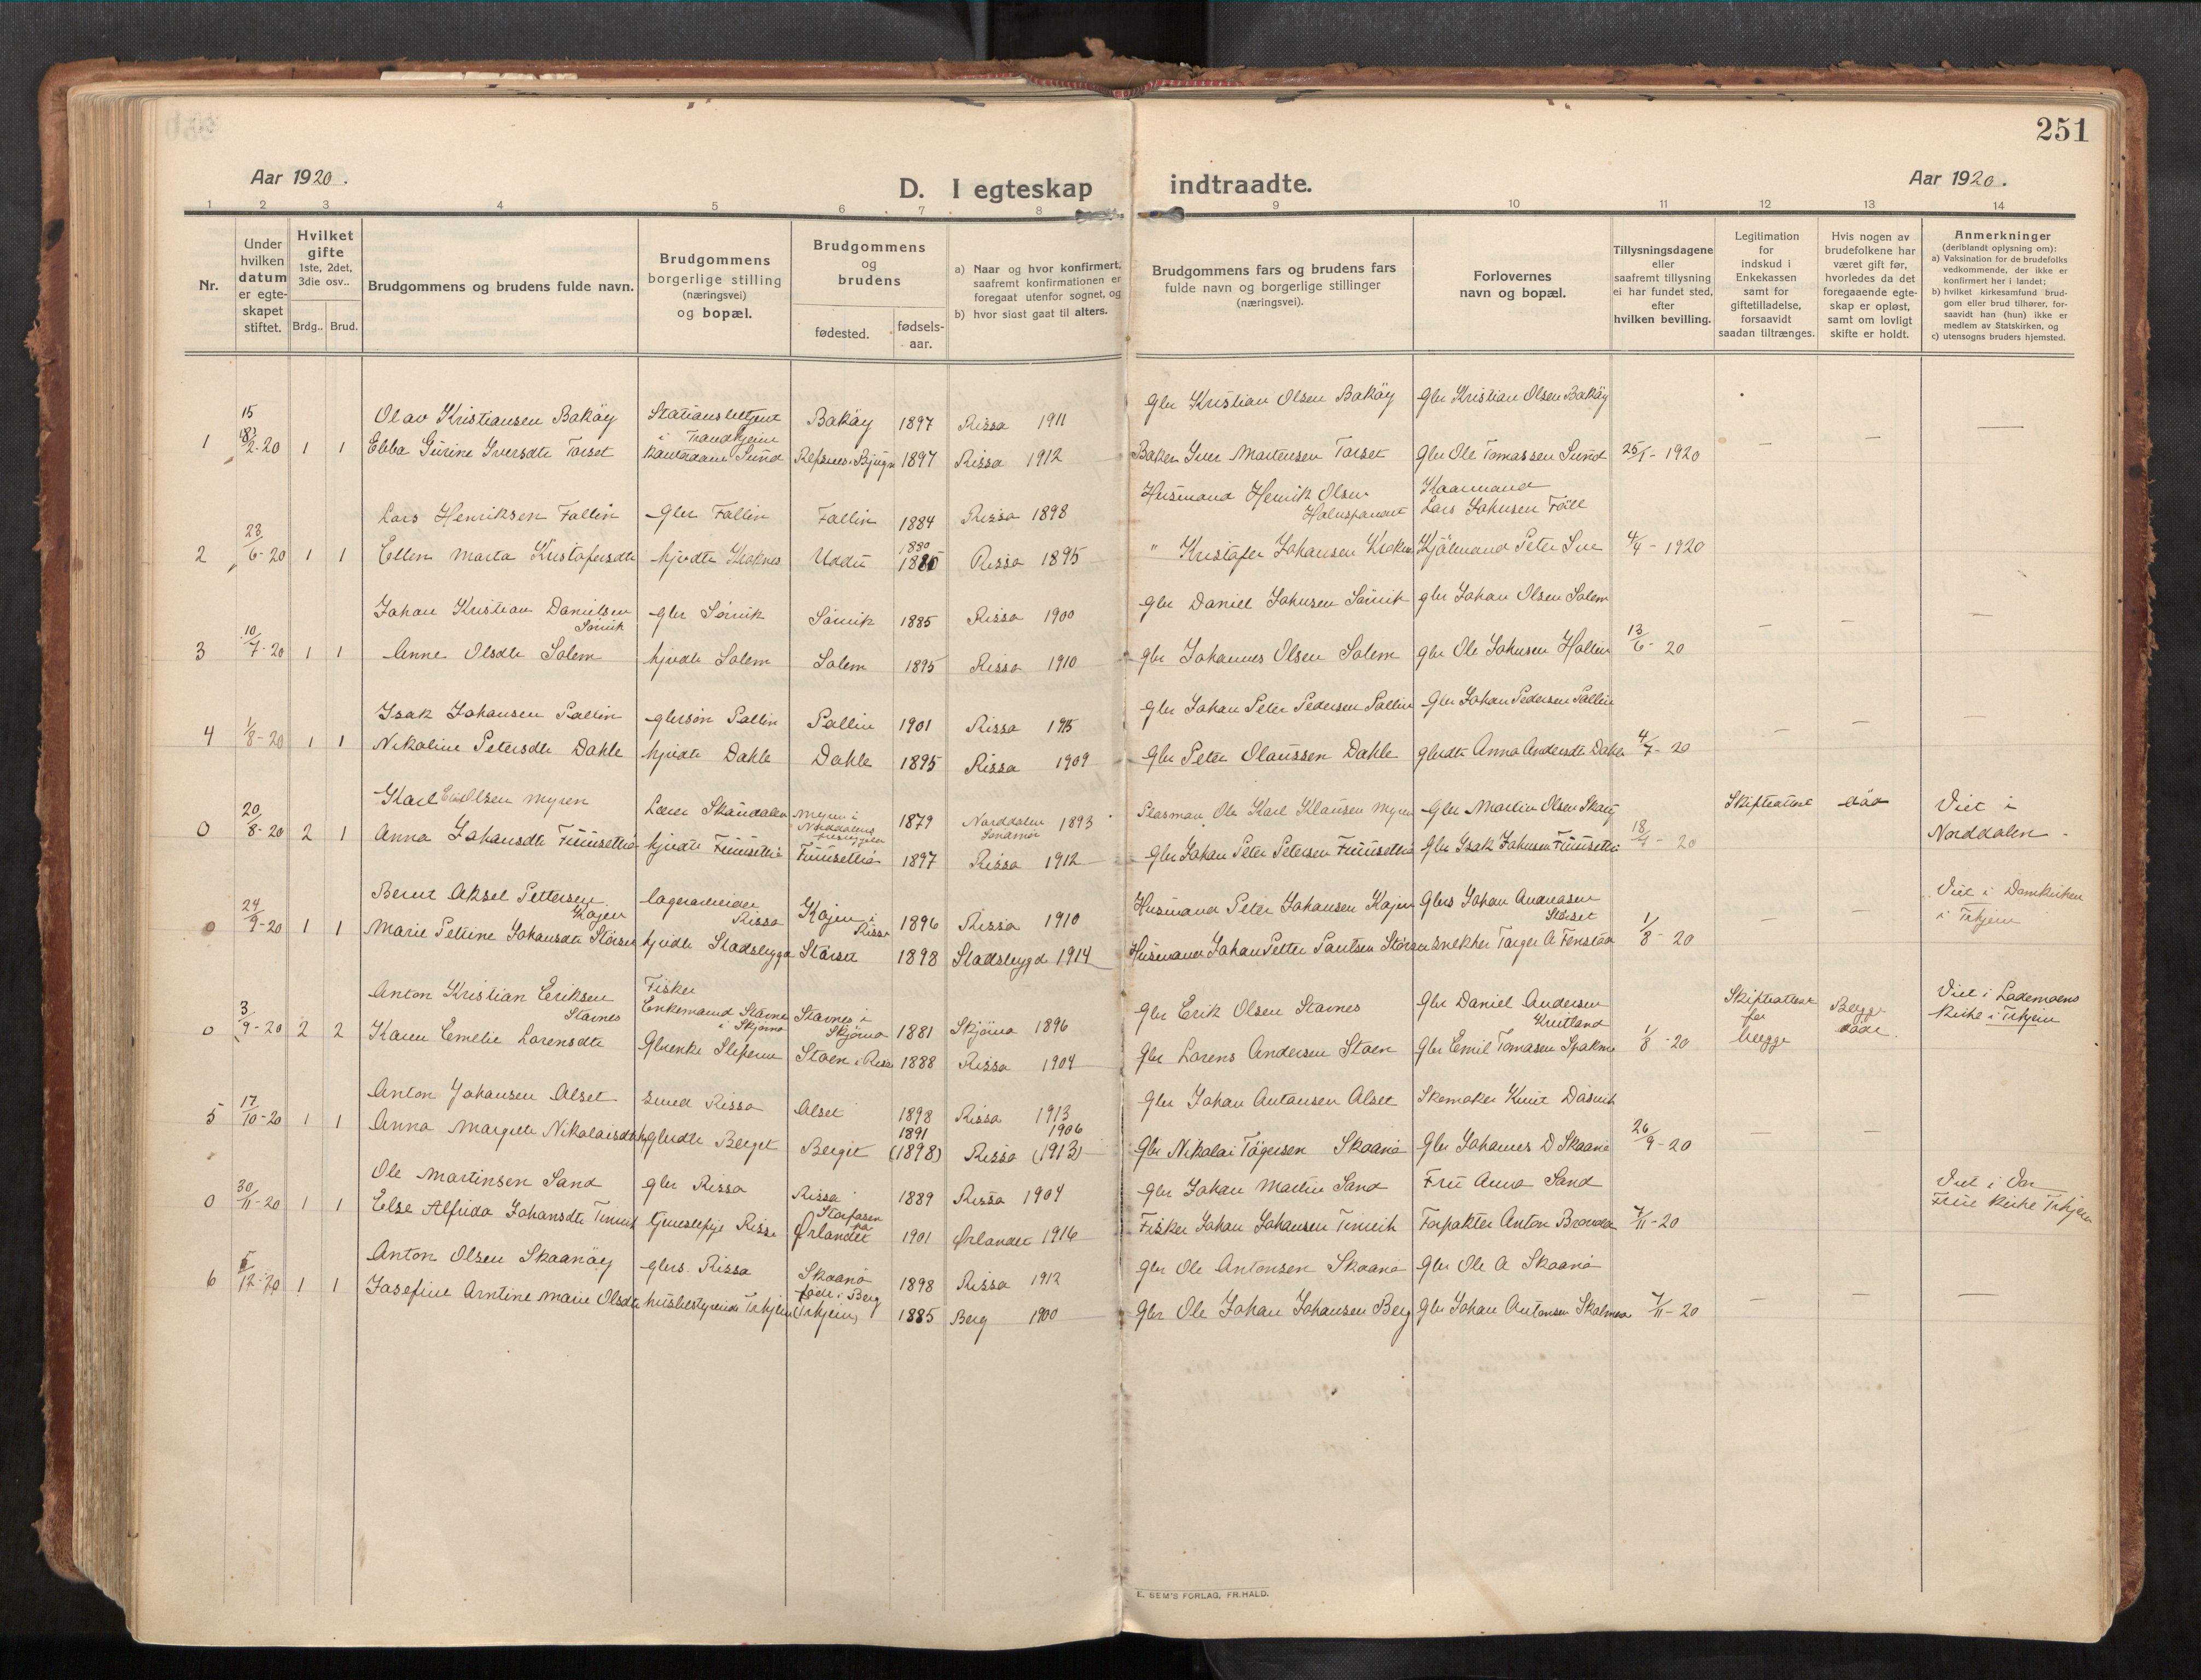 251
Aar 1920.
D. I egteskap indtraadte.
Aar 1920.
1 2 3 4 5 6 7 8 9 10 11 12 13 14
Nr.
Under hvilken datum er egteskapet stiftet.
Hvilket gifte 1ste, 2det, 3die osv..
Brdg.. Brud.
Brudgommens og brudens fulde navn.
Brudgommens borgerlige stilling (næringsvei) og bopæl.
Brudgommens og brudens
fødested.
fødsels-aar.
a) Naar og hvor konfirmert, saafremt konfirmationen er foregaat utenfor sognet, og
b) hvor sidst gaat til alters.
Brudgommens fars og brudens fars fulde navn og borgerlige stillinger (næringsvei).
Forlovernes navn og bopæl.
Tillysningsdagene eller saafremt tillysning ei har fundet sted, efter hvilken bevilling.
Legitimation for indskud i Enkekassen samt for giftetilladelse, forsaavidt saadan tiltrænges.
Hvis nogen av brudefolkene har været gift før, hvorledes da det foregaaende egteskap er opløst, samt om lovligt skifte er holdt.
Anmerkninger (deriblandt oplysning om):
a) Vaksination for de brudefolks vedkommende, der ikke er konfirmert her i landet;
b) hvilket kirkesamfund brudgom eller brud tilhører, forsaavidt han (hun) ikke er medlem av Statskirken, og
c) utensogns bruders hjemsted.
Olav Kristiansen Bakøy Bakøy 1897 Rissa 1911 Gbr Kristian Olsen Bakøy Gbr Kristian Olsen Bakøy
1 2-20 1 1 Ebba Gurine Iversdtr Torset Sund 1897 Rissa 1912 Baker Iver Mortensen Torset Gbr Ole Tomassen Sund 25/1 - 1920 — — —
Lars Henriksen Fallin Gbr Fallin Fallin 1884 Rissa 1898 Husmand Henrik Olsen Kaarmand Lars Johnsen
2 23/6-20 1 1 Ellen Marta Kristofersdtr hjvdtr Uddu 1880 Rissa 1895 " Kristofer Johansen Peter 4/4 - 1920
Johan Kristian Danielsen Sørvik gbr Sørvik Sørvik 1885 Rissa 1900 Gbr Daniel Johnsen Sørvik gbr Johan Olsen Solem
3 10/7-20 1 1 Anne Olsdtr Solem hjvdtr Solem Solem 1895 Rissa 1910 gbr Johannes Olsen Solem gbr Ole Johnsen 13/6 - 20 — — —
Isak Johansen Pallin gbrsøn Pallin Pallin 1901 Rissa 1915 Gbr Johan Peter Pedersen Pallin Gbr Johan Pedersen Pallin
4 1/8-20 1 1 Nikoline Petersdtr Dahle hjvdtr Dahle Dahle 1895 Rissa 1909 Gbr Peter Olaussen Dahle gbrdtr Anna Andersdtr Dahle 4/7 - 20 — — —
Karl Olsen Myren Lærer Myren i Norddalens 1879 Norddalen Søndmør 1893 Ole Karl Klausen Myren Gbr Martin Olsen Skifteattest død Viet i Norddalen
0 20/8-20 2 1 Anna Johansdtr Fuusetliø hjvdtr Fuusetliø Fuusetliø 1897 Rissa 1912 Gbr Johan Peter Petersen Fuusetliø Gbr Isak Johnsen Fuusetliø 18/7 - 20
Bernt Aksel Pettersen Kojen lagerarbeider Rissa Kojen i Rissa 1896 Rissa 1910 Husmand Peter Johansen Kojen Gbrs Johan Størset Viet i Domkirken i Trhjem
0 24/9-20 1 1 Marie Petrine Johansdtr Størset hjvdtr Stadsbygd Størset 1898 Stadsbygd 1914 Husmand Johan Petter 1/8 - 20 — —
Anton Kristian Eriksen Stavnes Fisker Enkemand Stavnes i Skjørna Stavnes i Skjørna 1881 Skjørna 1896 Gbr Erik Olsen Stavnes Gbr Daniel Andersen Skifteattest for begge Begge døde Viet i Lademoens kirke i Trhjem
0 3/9-20 2 2 Karen Emelie Lorensdtr Gbrenke Støen i Rissa 1888 Rissa 1904 gbr Lorens Andersen Støen Gbr Emil Tomasen 1/8 - 20
Anton Johansen Alset Smed Rissa Alset 1898 Rissa 1913 Gbr Johan Antonsen Alset Skomaker
5 17/10-20 1 1 Anna Margrete Nikolaisdtr gbrdtr Berget Berget 1891 (1898) Rissa 1906 (1913) Gbr Nikolai Skaanø Gbr Johannes D Skaanø 26/9 - 20 — —
Ole Martinsen Sand gbr Rissa Rissa 1889 Rissa 1904 Gbr Johan Martin Sand Fru Anna Sand Viet i Vor Frue kirke Trhjem
0 30/11-20 1 1 Else Alfrida Johansdtr tjenestepige Rissa Storfosen paa Ørlandet 1901 Ørlandet 1916 Fisker Johan Johansen Forpakter Anton 7/11-20
Anton Olsen Skaanøy gbrs. Rissa Skaanø 1898 Rissa 1912 Gbr Ole Antonsen Skaanø Gbr Ole A Skaanø
6 12-20 1 1 Josefine Arntine Marie Olsdtr husbestyrerinde Trhjem født i Berg (Trhjem) 1885 Berg 1900 Gbr Ole Johan Johansen Berg Gbr Johan Antonsen 7/11-20 — — —
E. SEM'S FORLAG, FR.HALD.